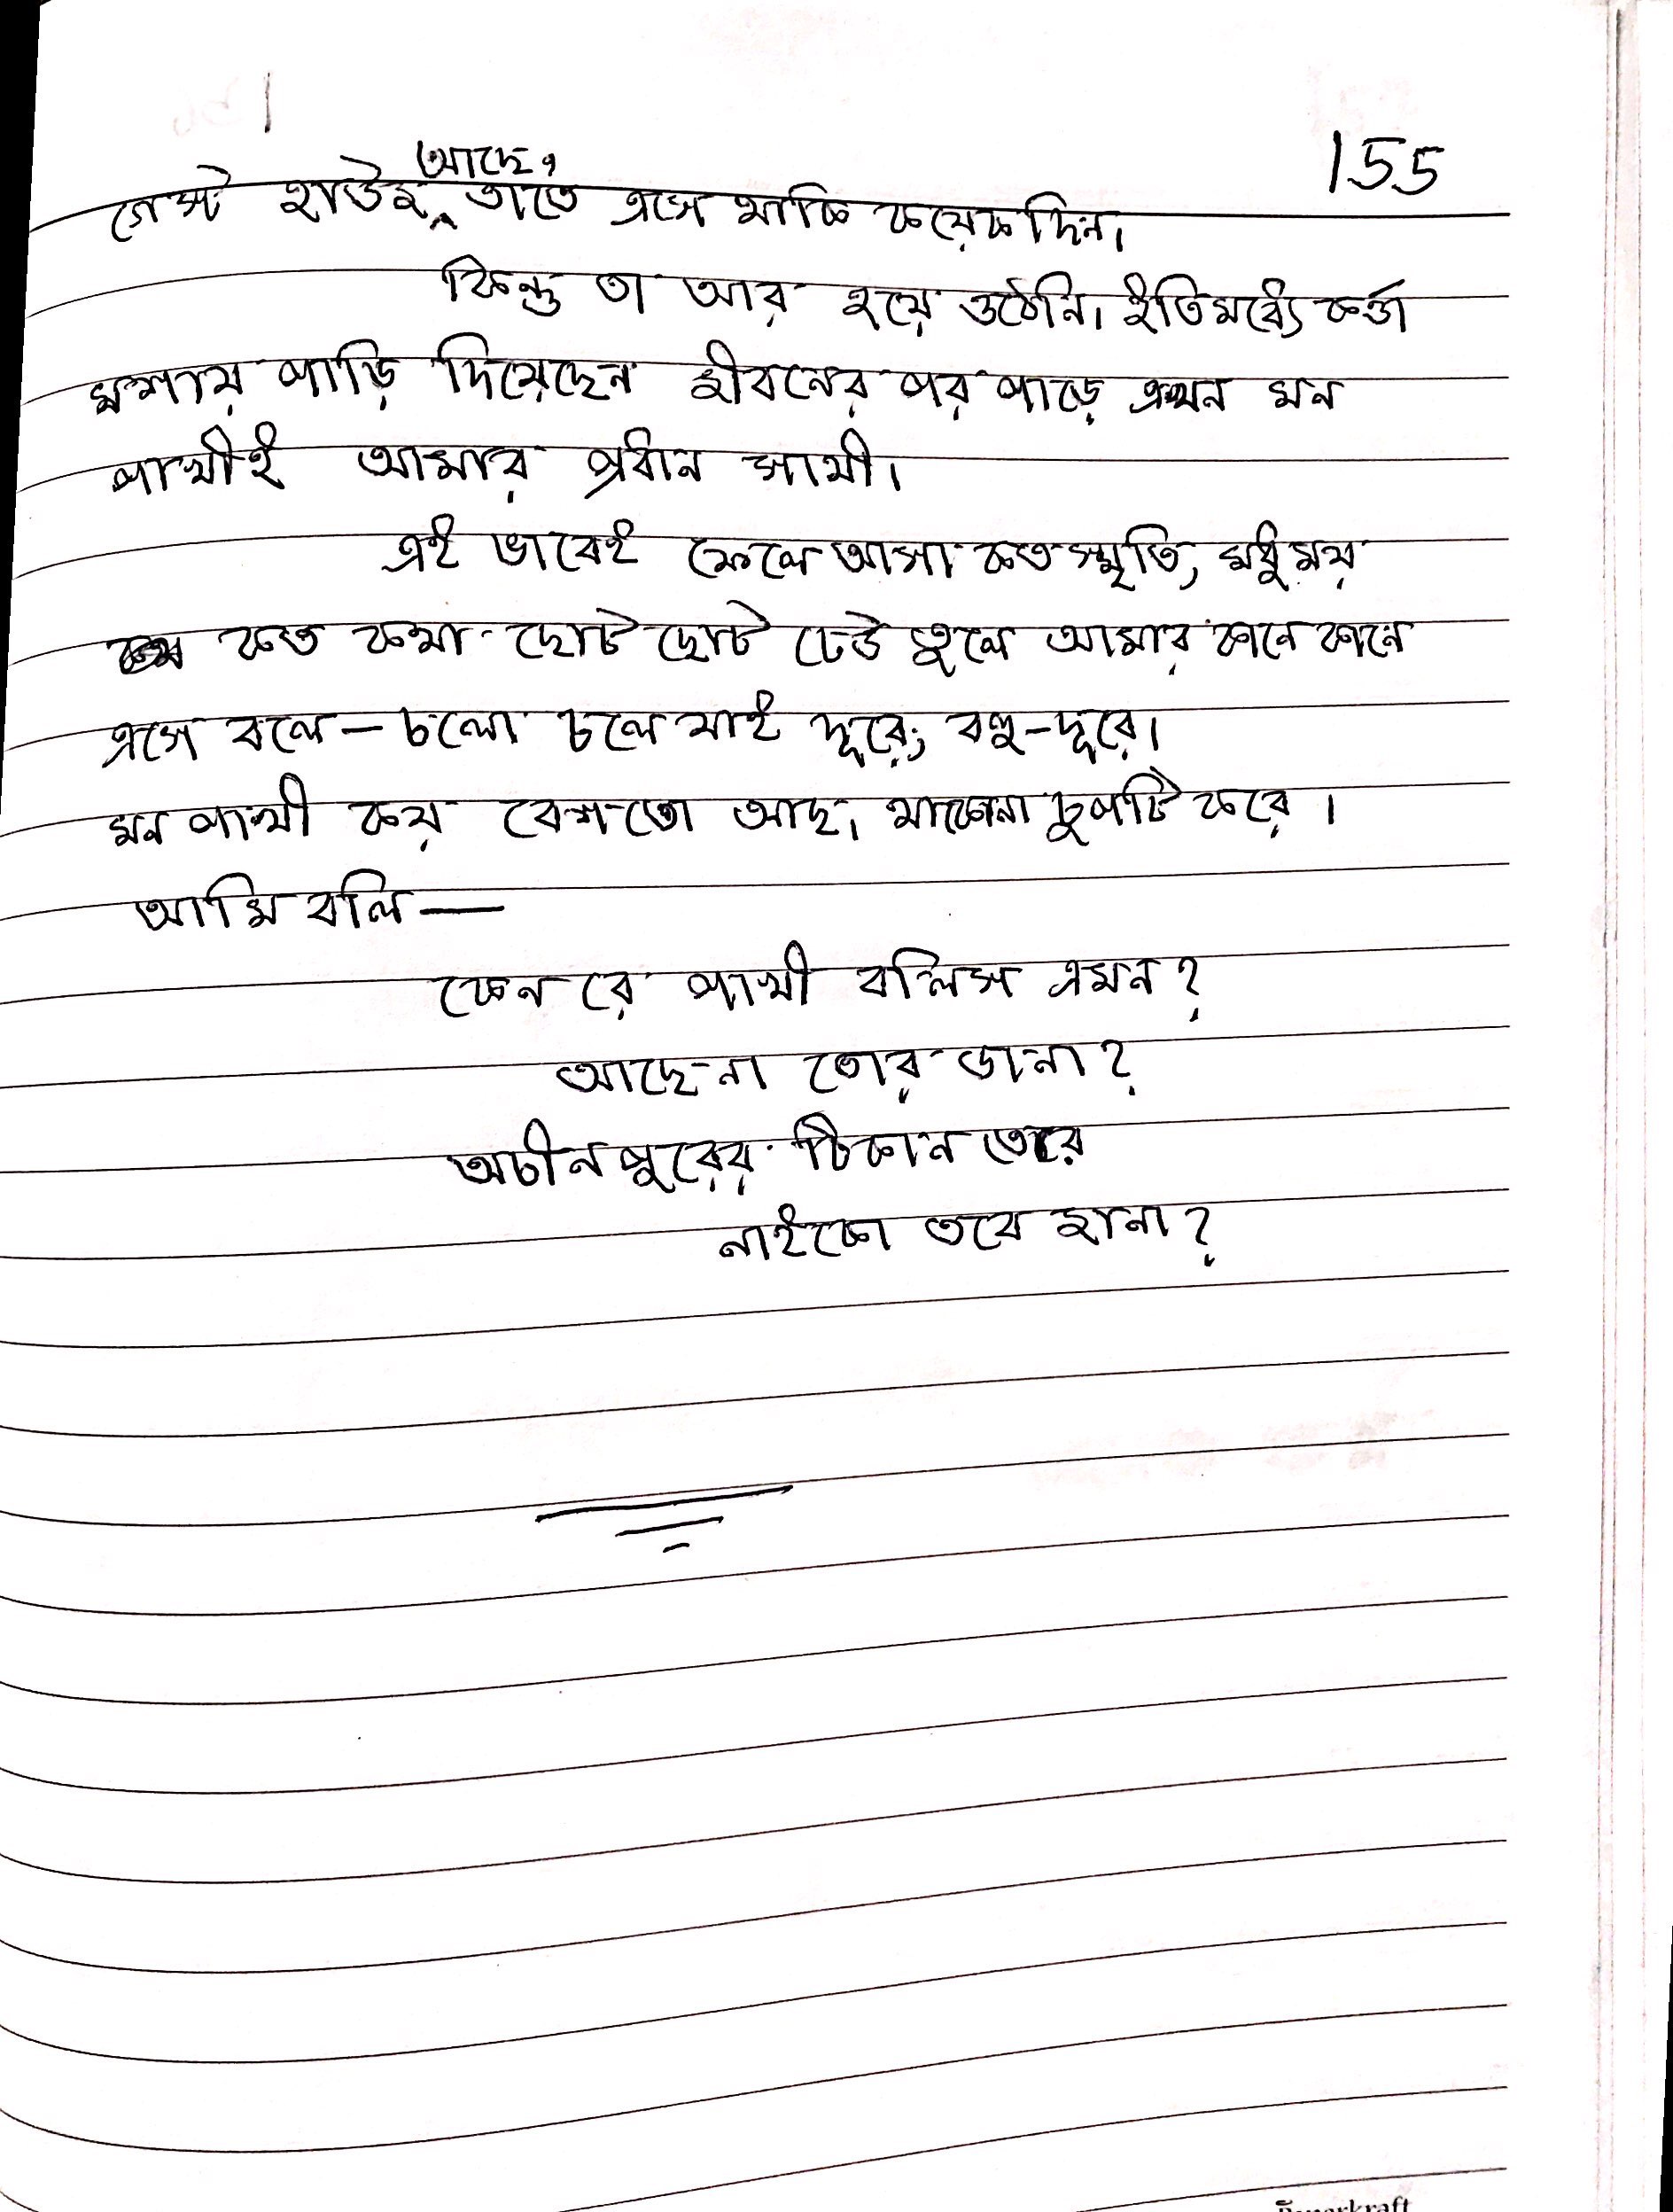 155
গেস্ট হাউজ আছে, তাতে এসে থাকি কয়েকদিন।
কিন্তু তা আর হয়ে ওঠেনি। ইতিমধ্যে কর্ত্তা
মশায় পাড়ি দিয়েছেন জীবনের পর পাড়ে এখন মন
পাখীই আমার প্রধান সাথী।
এই ভাবেই ফেলে আসা কত স্মৃতি, মধুময়
কত কথা ছোট ছোট ঢেউ তুলে আমার কানে কানে
এসে বলে — চলো চলে যাই দূরে, বহু-দূরে।
মন পাখী কয় বেশতো আছ, থাকোনা চুপটি করে।
আমি বলি —
কেন রে পাখী বলিস এমন?
আছে না তোর ডানা?
অচীন পুরের ঠিকান তোর
নাইকো তবে জানা?